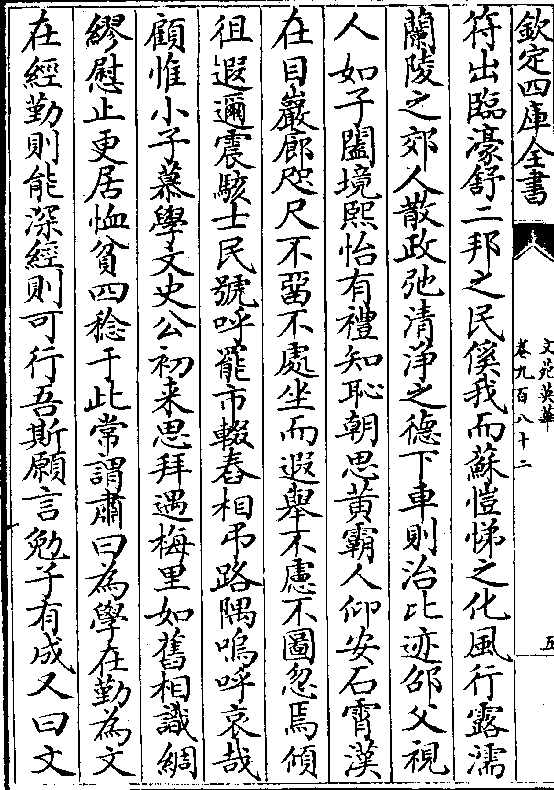 欽定四庫全書
文苑英華
卷九百八十二
五
符出臨濠舒二邦之民傒我而蘇愷悌之化風行露濡
蘭陵之郊人散政弛清淨之德下車則治比迹邵父視
人如子闔境熙怡有禮知恥朝思黃霸人仰安石霄漢
在目巖廊咫尺不留不處坐而遐舉不慮不圖忽焉傾
徂遐邇震駭士民號呼罷市輟舂相弔路隅嗚呼哀哉
顧惟小子慕學文史公初来思拜遇梅里如舊相識綢
繆慰止更居恤貧四稔于此常謂肅曰為學在勤為文
在經勤則能深經則可行吾斯願言勉子有成又曰文